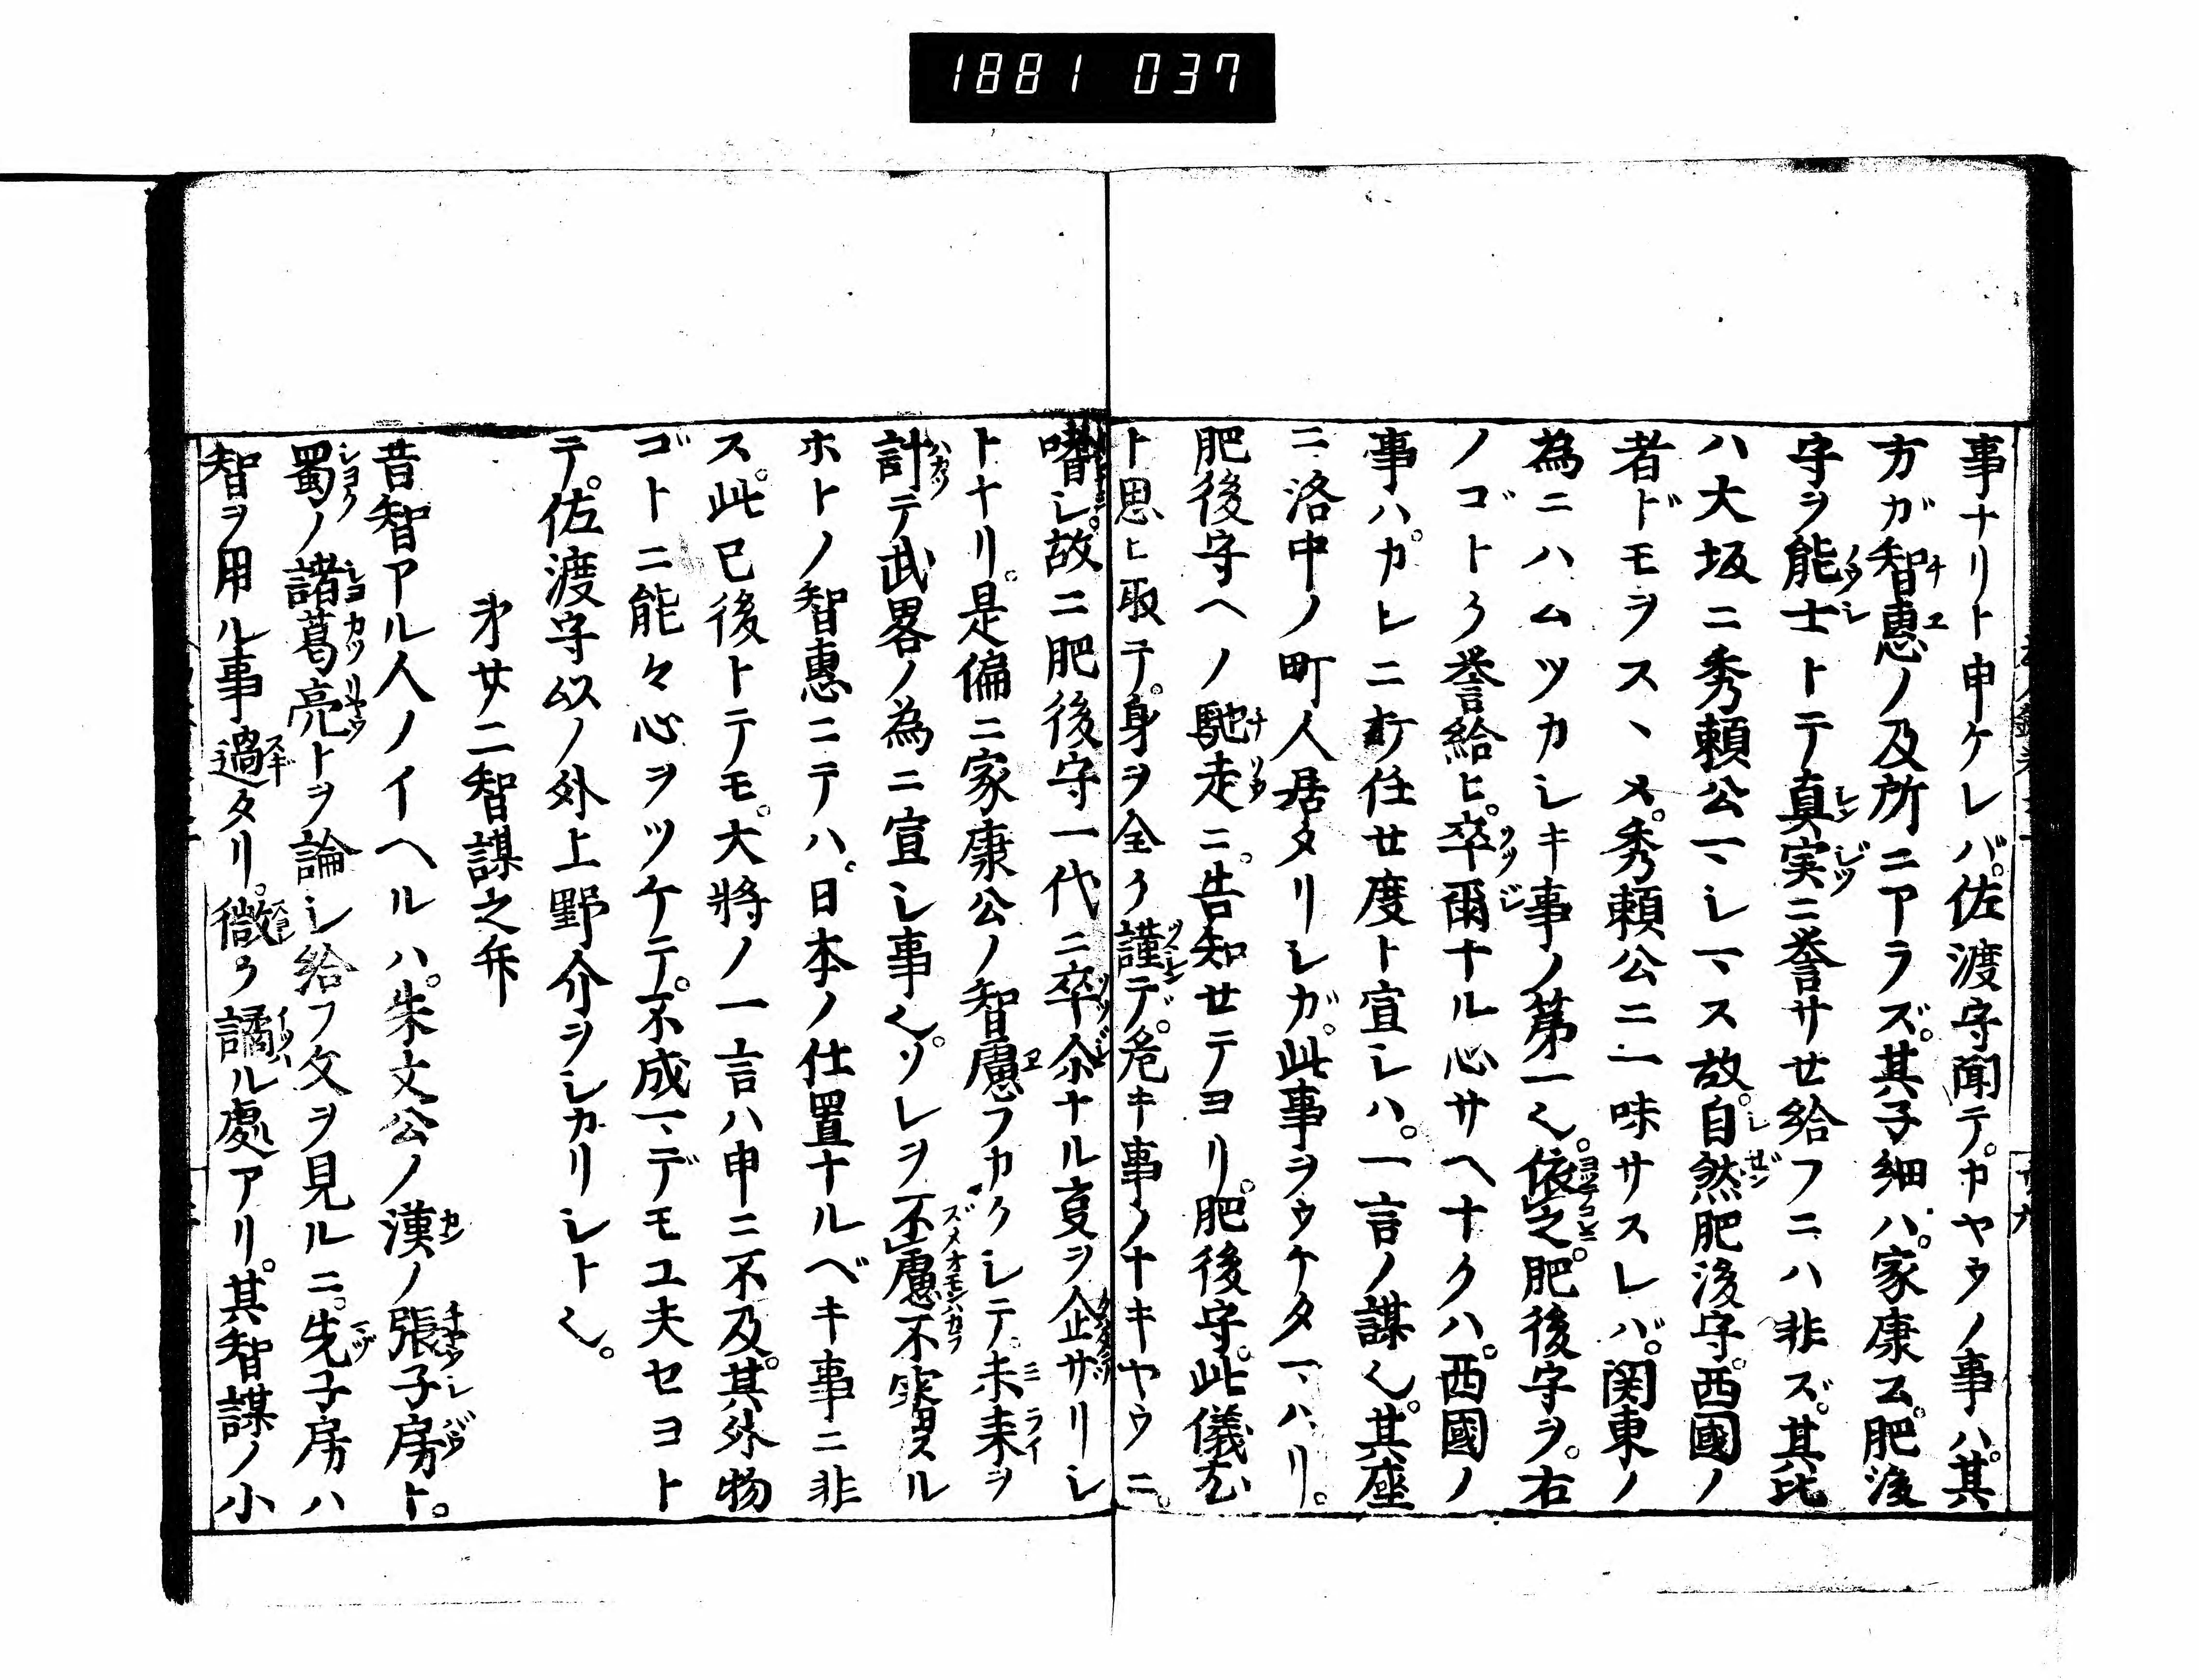 1881 037
事ナリト申ケレバ。佐渡守聞テ。カヤウノ事ハ。其
方ガ智惠ノ及所ニアラズ。其子細ハ。家康公。肥後
守ヲ能士トテ真実ニ誉サせ給フニハ非ズ。其比
ハ大坂ニ秀頼公マシマス故。自然肥後守。西國ノ
者ドモヲスヽメ。秀頼公ニ一味サスレバ。関東ノ
為ニハムツカシキ事ノ第一也。依之。肥後守ヲ。右
ノゴトク誉給ヒ。卒爾ナル心サヘナクハ。西國ノ
事ハ。カレニ打任せ度ト宣シハ。一言ノ謀也。其座
ニ洛中ノ町人居タリシガ。此事ヲウケタマハリ。
肥後守ヘノ馳走ニ。告知せテヨリ。肥後守。此儀尤
ト思ヒ取テ。身ヲ全ク謹デ。危キ事ノナキヤウニ。
嗜シ。故ニ肥後守一代ニ卒尓ナル叓ヲ企ザリシ
トナリ。是偏ニ家康公ノ智慮フカクシテ。未来ヲ
計テ武畧ノ為ニ宣シ事也。ソレヲ不慮不案ヨスル
ホトノ智惠ニテハ。日本ノ仕置ナルベキ事ニ非
ス。此已後トテモ。大將ノ一言ハ申ニ不及。其外物
ゴトニ能々心ヲツケテ。不成マデモユ夫セヨト
テ。佐渡守以ノ外上野介ヲシカリシト也。
㐧廿二智謀之弁
昔智アル人ノイヘルハ。朱文公ノ漢ノ張子房ト。
蜀ノ諸葛亮トヲ論シ給フ文ヲ見ルニ。先子房ハ
智ヲ用ル事過タリ。微ク譎ル處アリ。其智謀ノ小